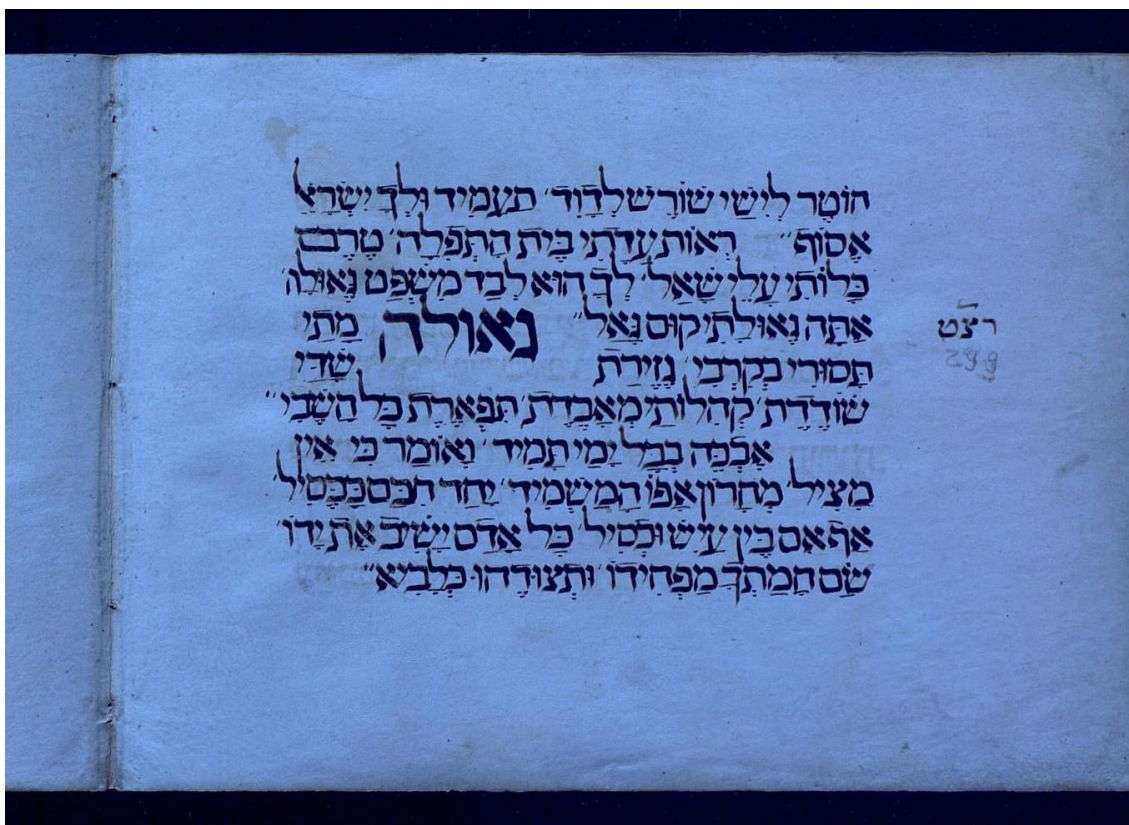 חוֹטֶר לְיִשַׁי שׁוֹרֶשׁ לְדָוִד׳ תַּעֲמִיד וּלְךָ יִשְׂרָאֵ
אֱסוֹף״ רְאוֹת עֲדָתִי בֵּית הַתְּפִלָּה׳ טֶרֶם
כַּלּוֹתִי עָלַי שְׁאַל׳ לְךָ הוּא לְבַד מִשְׁפַּט גְּאוּלָּה׳
אַתָּה גְאוּלָּתִי קוּם גְּאַל״ גאולה מָתַי
תָּסוּרִי בְקִרְבִּי׳ גְּזֵירַת שַׁדַּי
שׁוֹדֶדֶת׳ קְהִלּוֹתַי מְאַבֶּדֶת׳ תִּפְאֶרֶת כָּל הַשְּׁבִי״
אֶבְכֶּה בְּכָל יָמַי תָּמִיד׳ וְאוֹמַר כִּי אֵין
מַצִּיל׳ מֵחֲרוֹן אַפּוֹ הַמַּשְׁמִיד׳ יַחַד חָכָם כַּכְּסִיל׳
אַף אִם בֵּין עַיִשׁ וּכְסִיל׳ כָּל אָדָם יָשִׁיב אֶת יָדוֹ׳
שָׂם חֲמָתְךָ מַפְחִידוֹ׳ וּתְצוּדֵהוּ כְּלָבִיא״
רצט
299